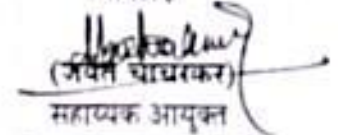 (जयंत चाचरकर)
सहाय्यक आयुक्त